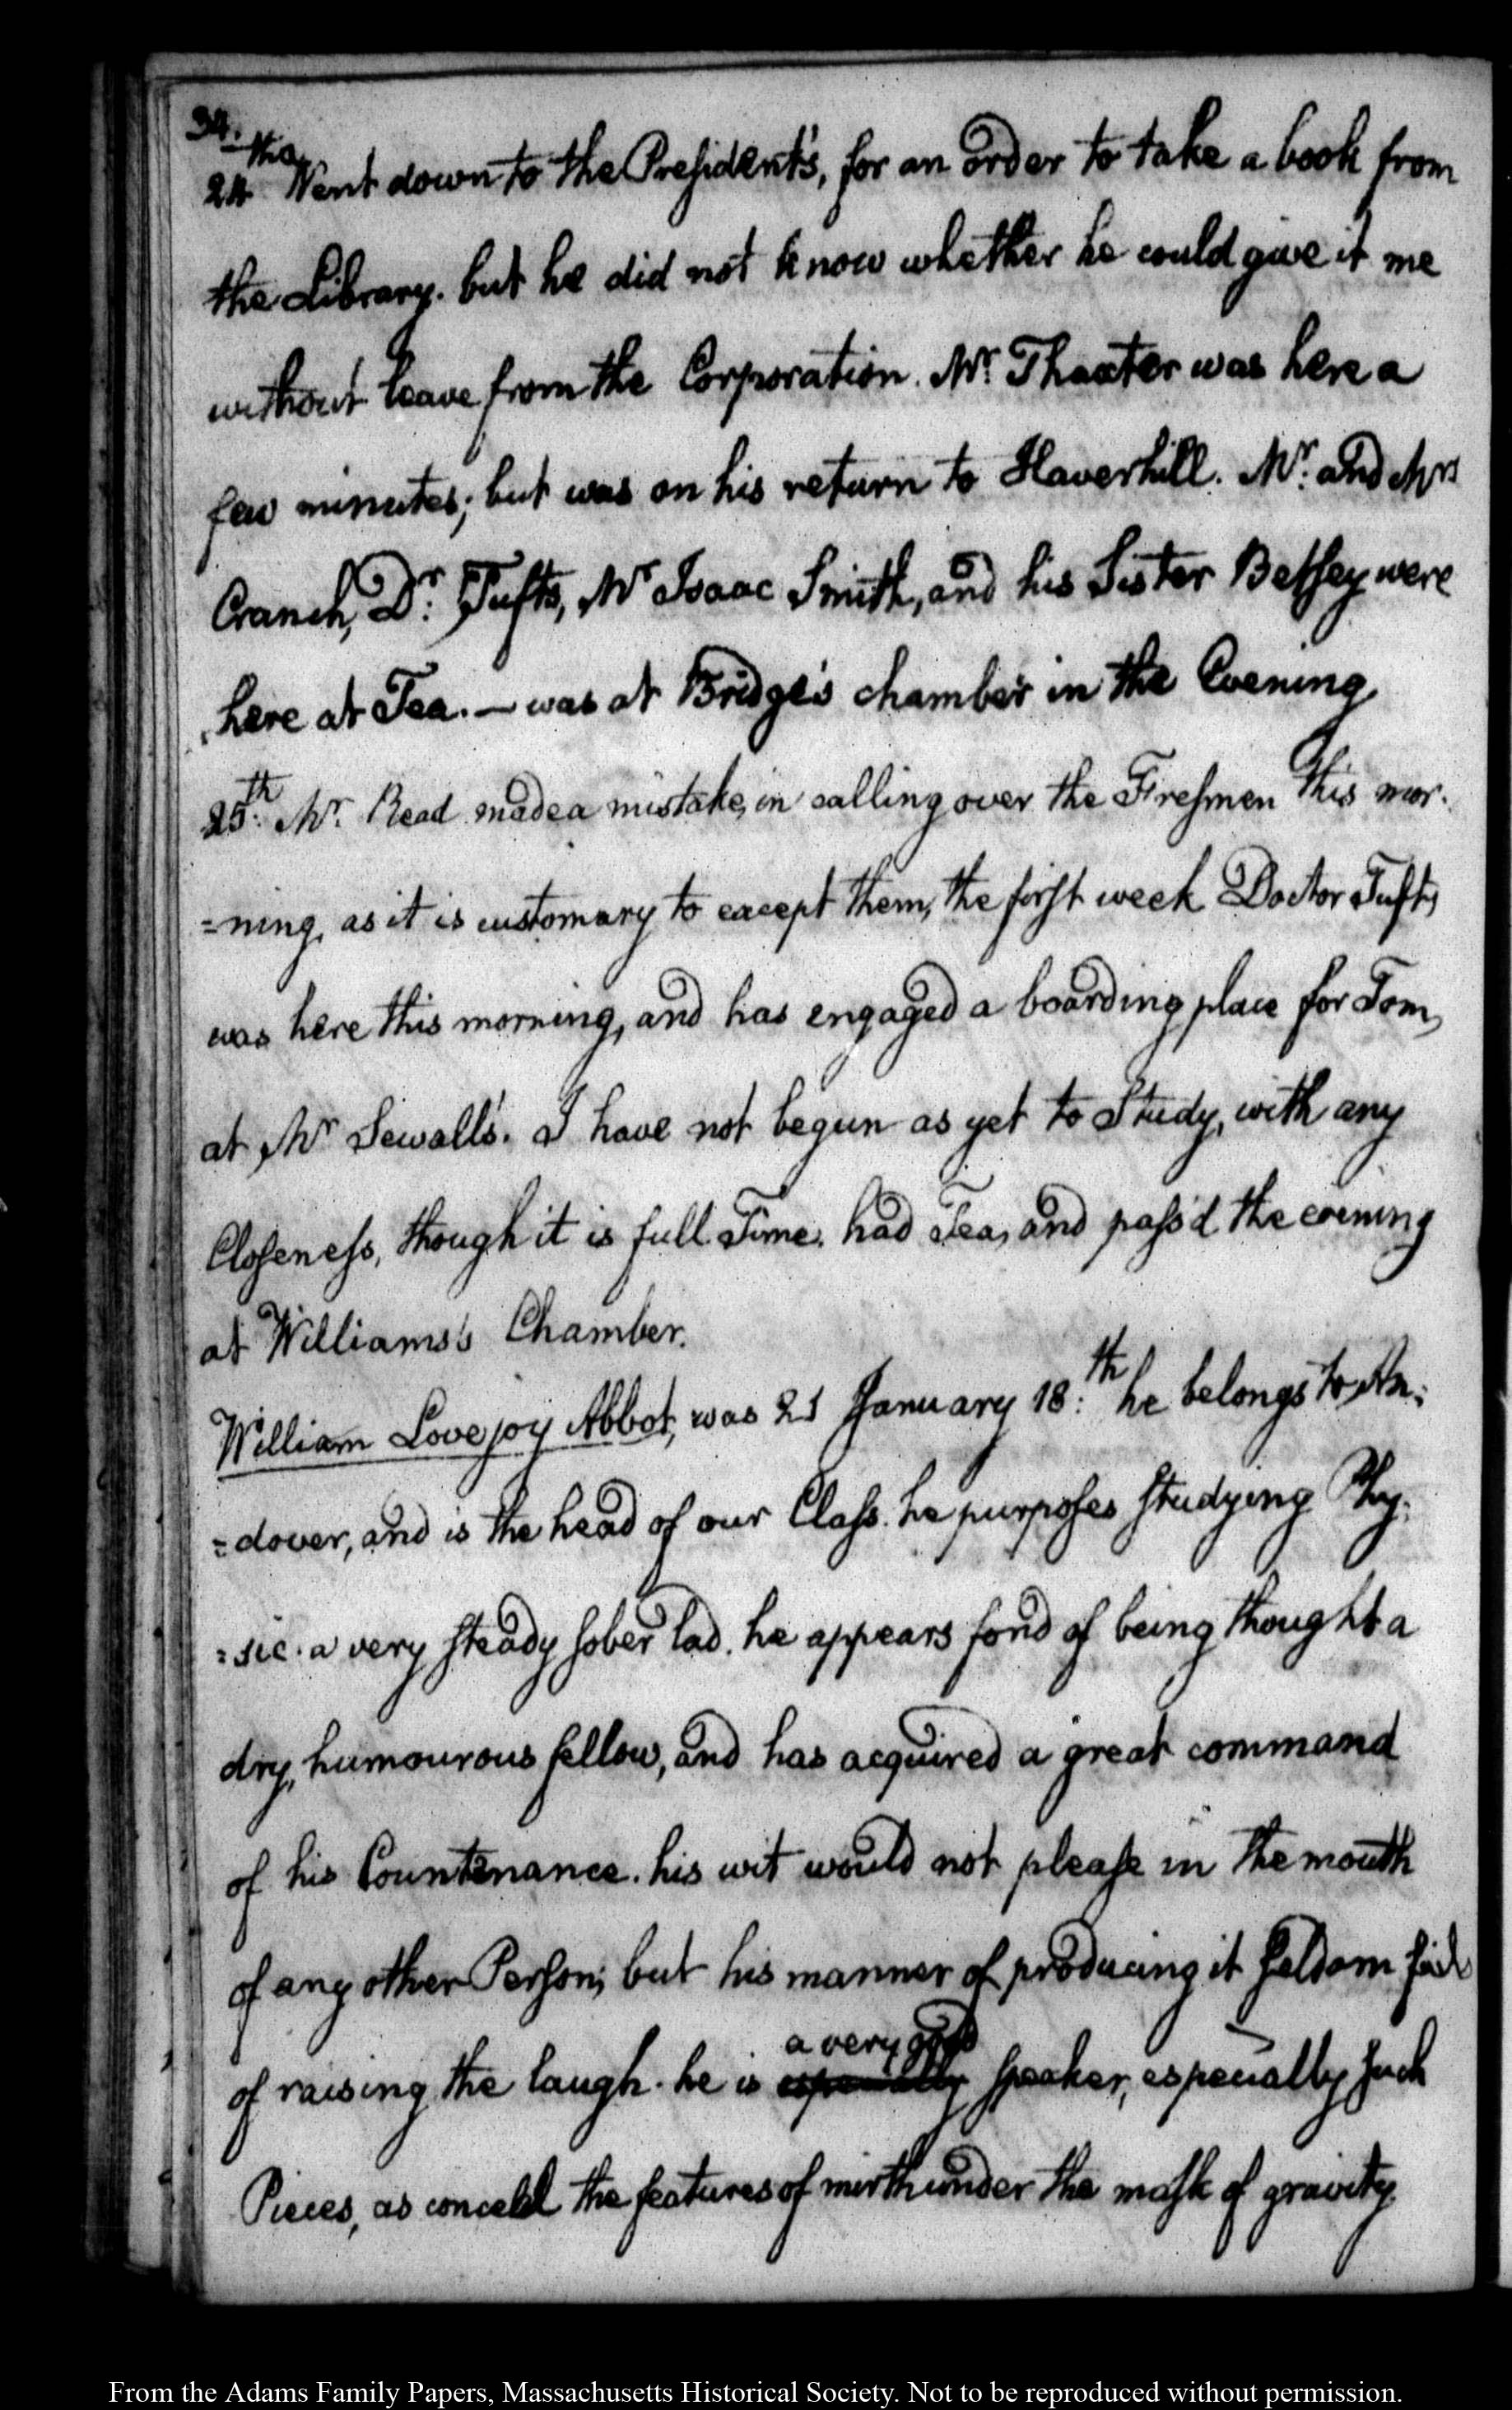 34.
24th Went down to the President's, for an order to take a book from
the Library. but he did not know whether he could give it me
without leave from the Corporation. Mr. Thaxter was here a
few minutes; but was on his return to Haverhill. Mr. and Mrs
Cranch, Dr. Tufts, Mr Isaac Smith, and his Sister Betsey were
here at Tea. — was at Bridge's chamber in the Evening.
25th. Mr. Read made a mistake, in calling over the Freshmen this mor-
=ning, as it is customary to except them, the first week Doctor Tufts,
was here this morning, and has engaged a boarding place for Tom,
at Mr Sewall's. I have not begun as yet to Study, with any
Closeness, though it is full Time. had Tea, and pass'd the evening
at Williams's Chamber.
William Lovejoy Abbot, was 21 January 18.th he belongs to An-
=dover, and is the head of our Class. he purposes studying Phy-
=sic. a very steady sober lad. he appears fond of being thought a
dry, humourous fellow, and has acquired a great command
of his Countenance. his wit would not please in the mouth
of any other Person; but his manner of producing it seldom fails
a very good
of raising the laugh. he is especially speaker, especially such
Pieces, as conceal the features of mirth under the mask of gravity.
From the Adams Family Papers, Massachusetts Historical Society. Not to be reproduced without permission.